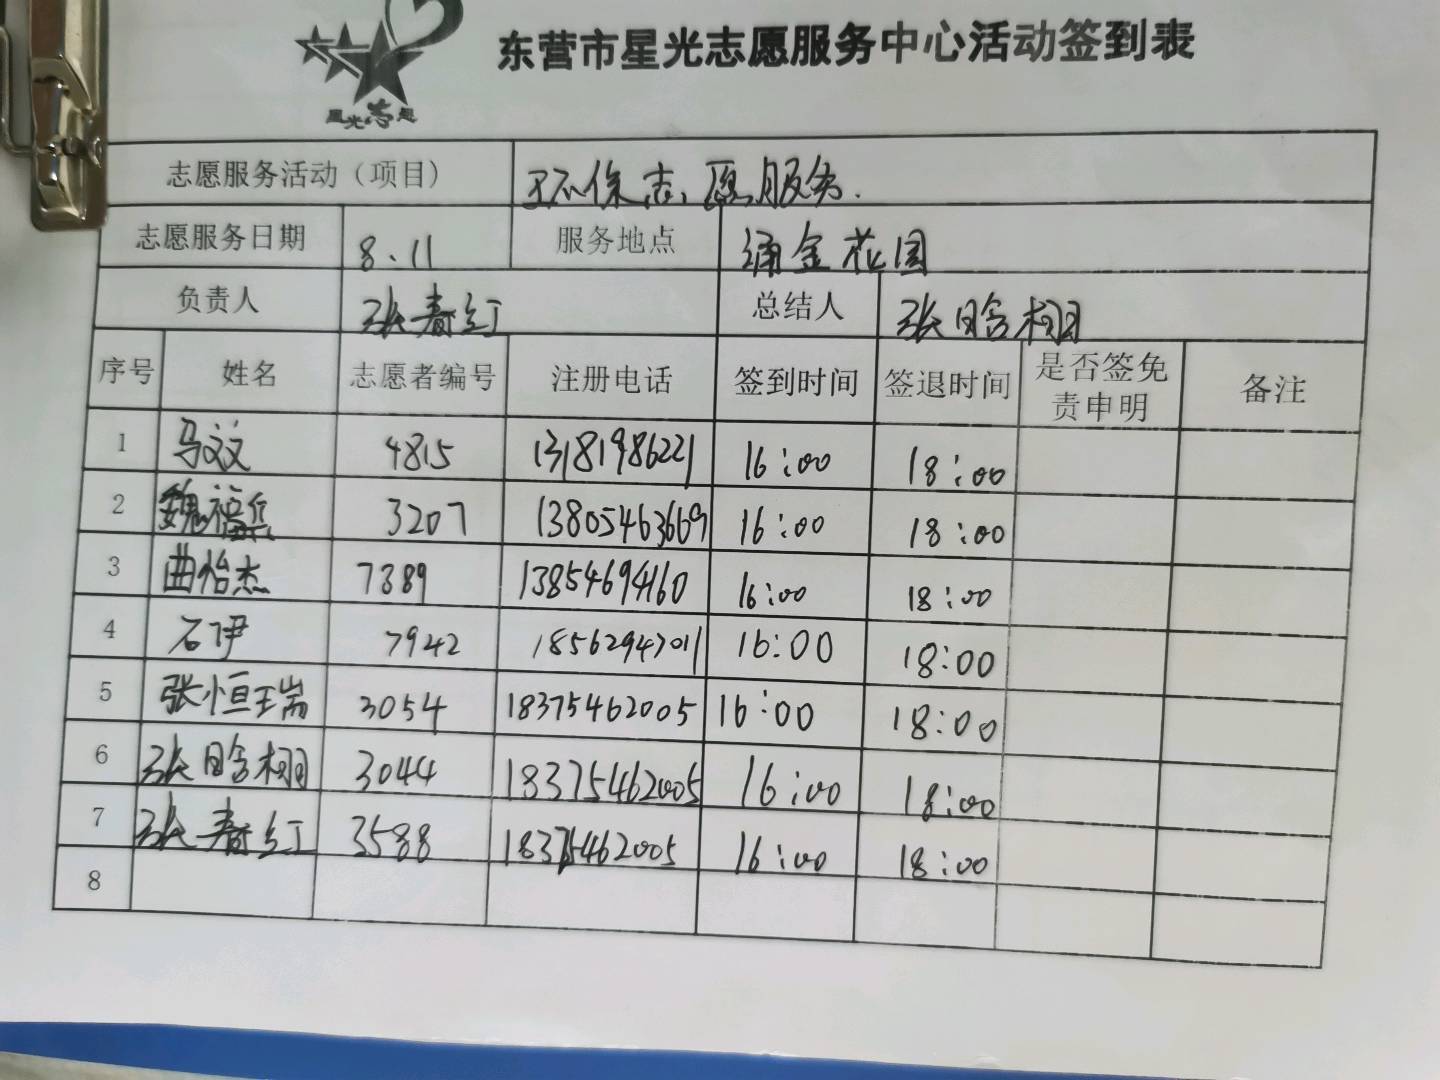 东营市星光志愿服务中心活动签到表
星光志愿
志愿服务活动（项目） 环保志愿服务.
志愿服务日期 8.11 服务地点 涌金花园
负责人 张春红 总结人 张晗栩
序号 姓名 志愿者编号 注册电话 签到时间 签退时间 是否签免责申明 备注
1 马文文 4815 13181986221 16:00 18:00
2 魏福兵 3207 13805463669 16:00 18:00
3 曲怡杰 7389 13854694160 16:00 18:00
4 石伊 7942 18562947011 16:00 18:00
5 张恒瑞 3054 18375462005 16:00 18:00
6 张晗栩 3044 18375462005 16:00 18:00
7 张春红 3588 18375462005 16:00 18:00
8